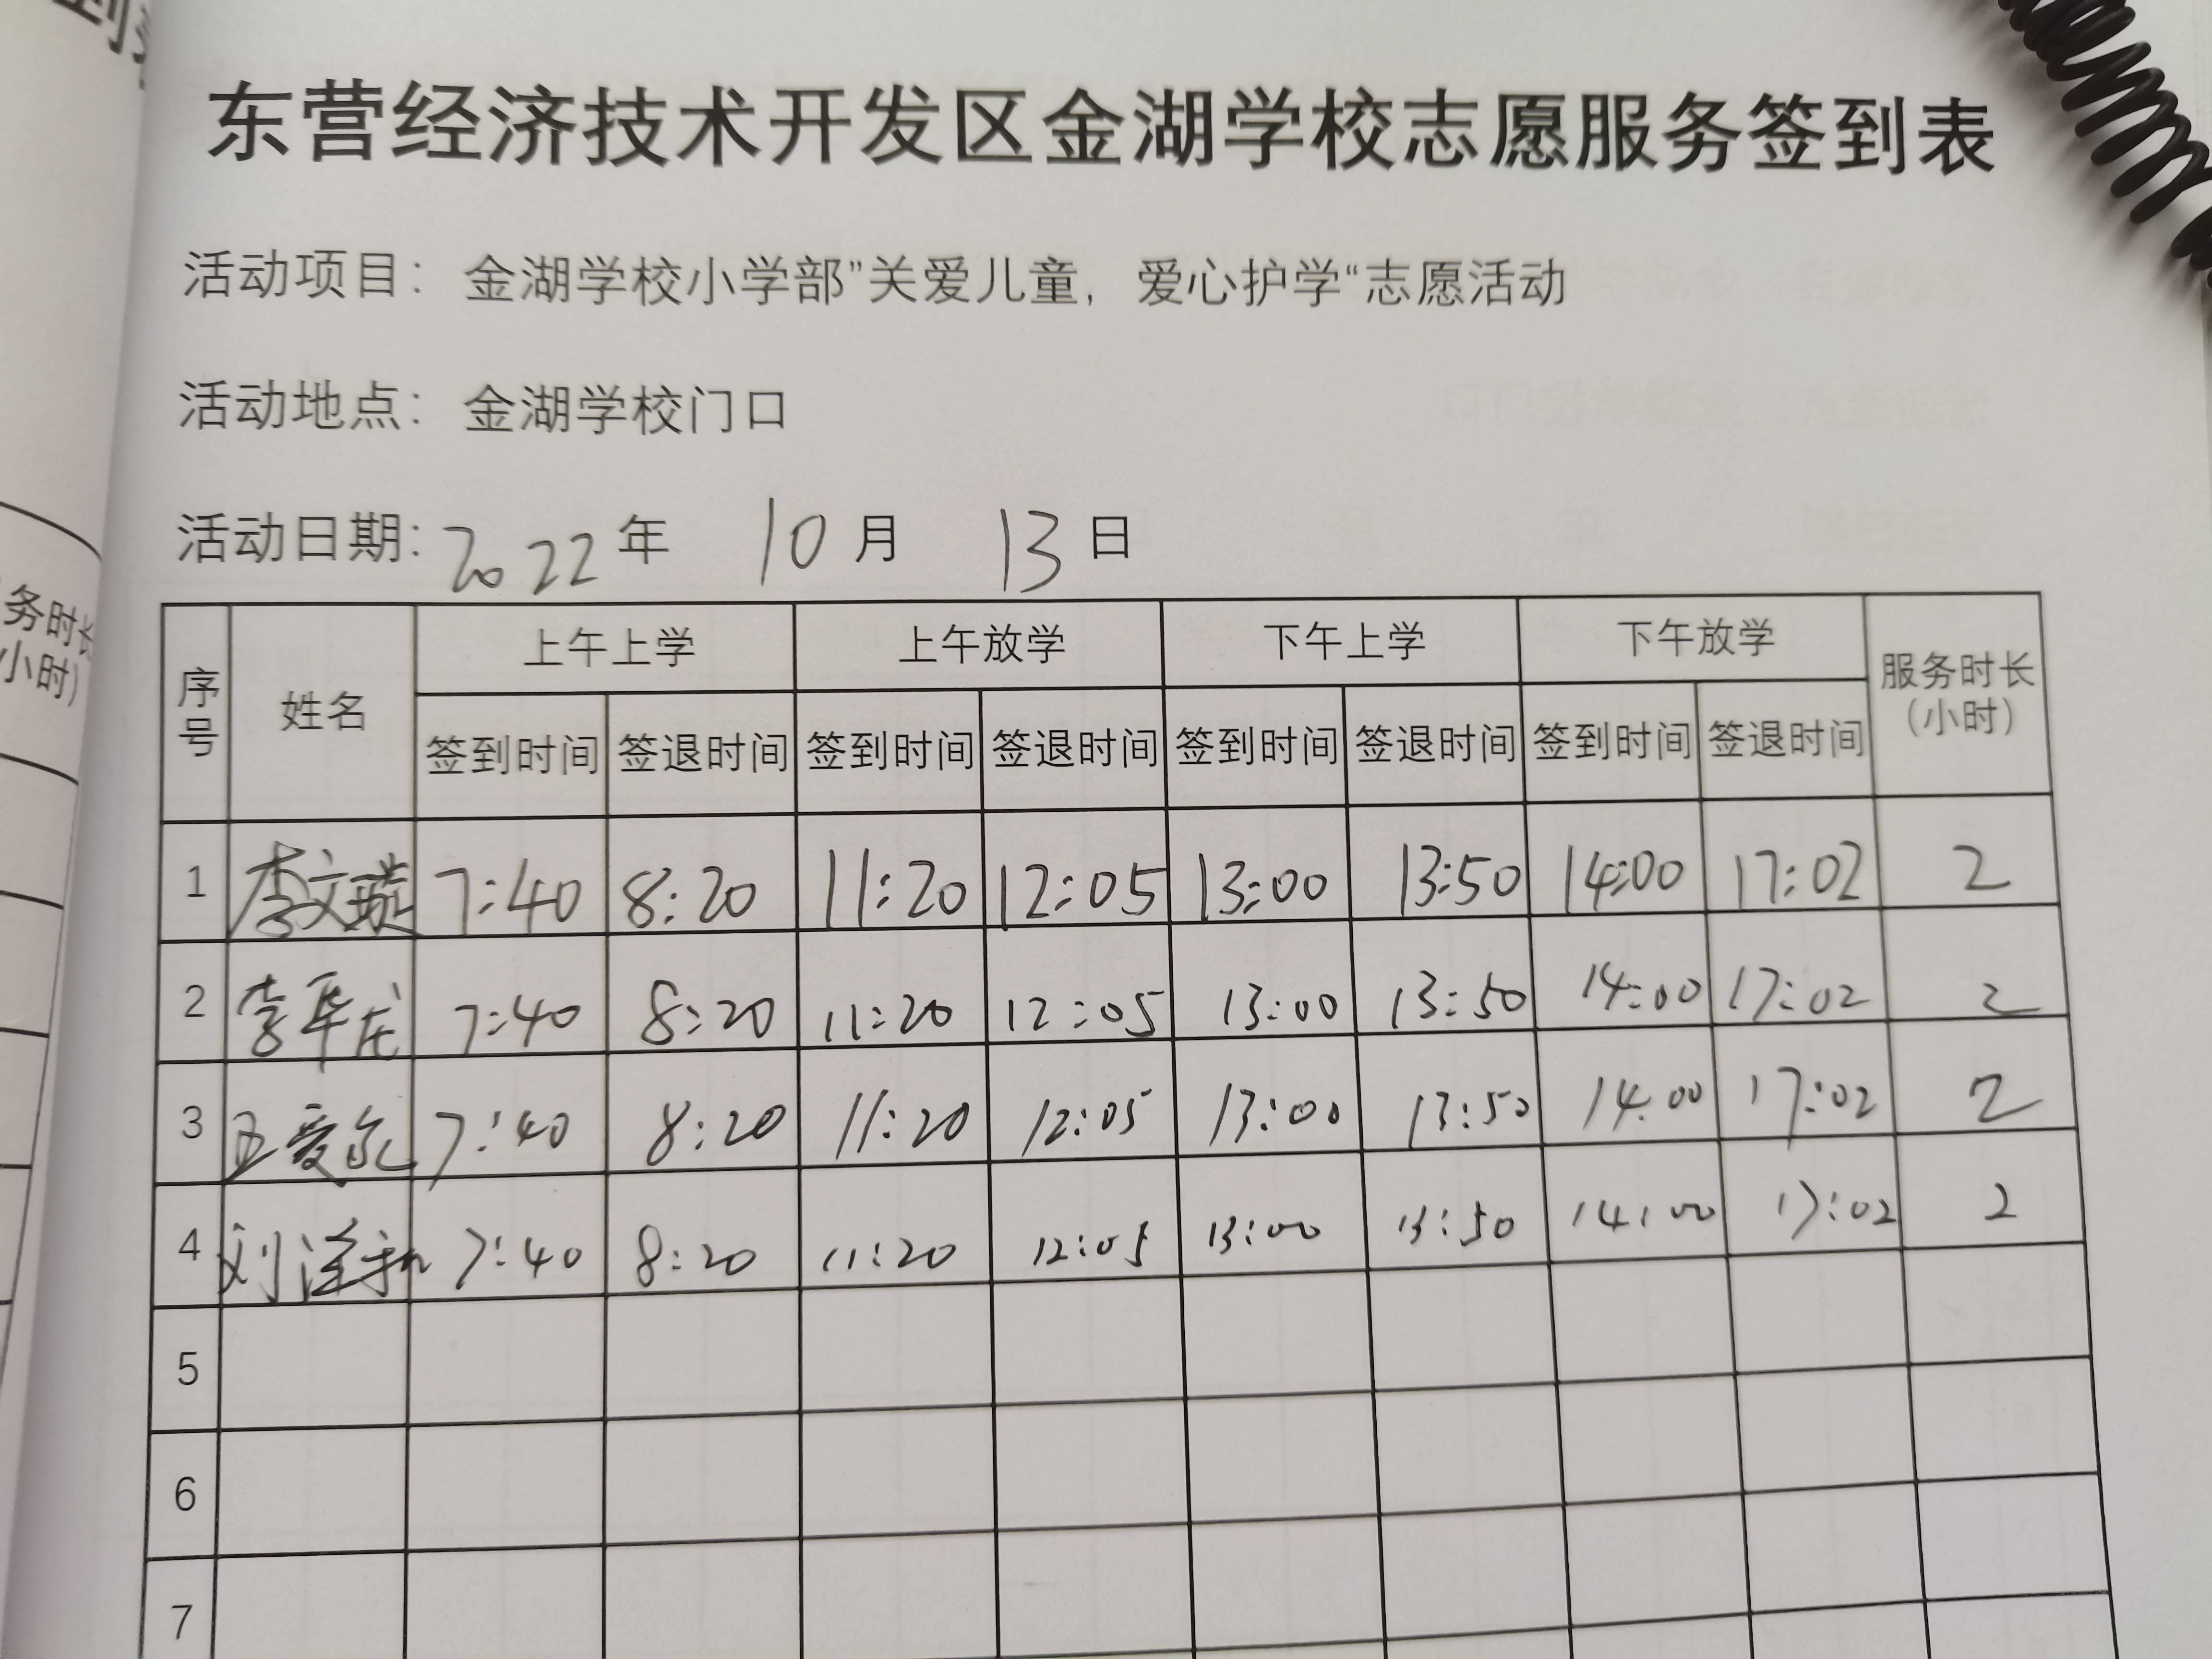 东营经济技术开发区金湖学校志愿服务签到表
活动项目：金湖学校小学部”关爱儿童，爱心护学“志愿活动
活动地点：金湖学校门口
活动日期：2022年 10月 13日
序号 姓名 上午上学 上午放学 下午上学 下午放学 服务时长（小时）
签到时间 签退时间 签到时间 签退时间 签到时间 签退时间 签到时间 签退时间
1 李文璇 7:40 8:20 11:20 12:05 13:00 13:50 14:00 17:02 2
2 李 7:40 8:20 11:20 12:05 13:00 13:50 14:00 17:02 2
3 7:40 8:20 11:20 12:05 13:00 13:50 14:00 17:02 2
4 刘 7:40 8:20 11:20 12:05 13:00 13:50 14:00 17:02 2
5
6
7
务时长
小时）